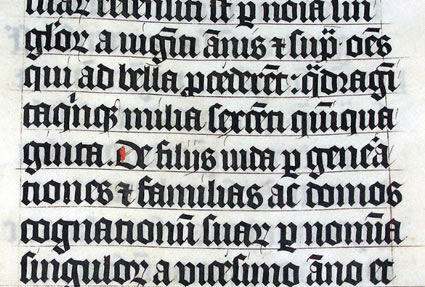 suaꝝ recensiti st̄ ꝑ noīa sin
gloꝝ a uigīti ānis ⁊ sup̄ oēs
qui ad bella ꝓcederēt: q̄dragī
taqīꝙ milia sexcēti qīiqua
ginta. De filijs iuda ꝑ gene͛a
tiones ⁊ familias ac domos
cognationū suaꝝ ꝑ nomīa
singuloꝝ a vicesimo āno et